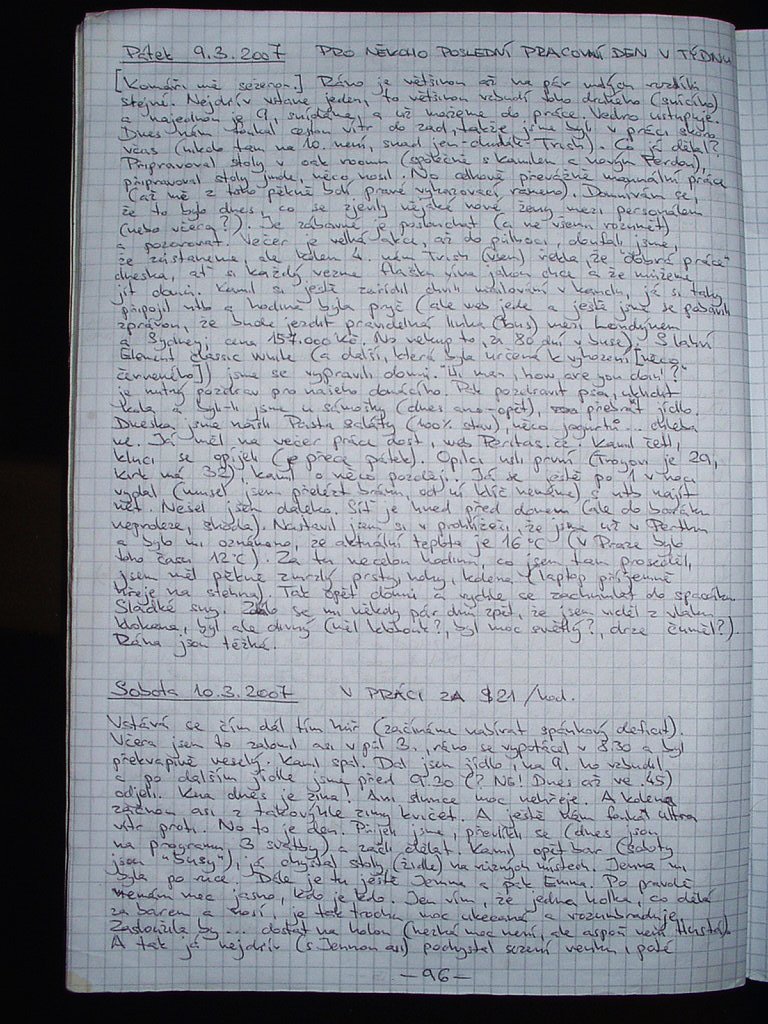 Pátek 9.3.2007 PRO NĚKOHO POSLEDNÍ PRACOVNÍ DEN V TÝDNU
[Komáři mě sežerou.] Ráno je většinou až na pár malých rozdílů
stejné. Nejdřív vstane jeden, to většinou vzbudí toho druhého (spícího)
a najednou je 9, snídáme, a už možeme do práce. Vedro ustupuje.
Dnes nám foukal cestou vítr do zad, takže jsme byli v práci skoro
včas (nikdo tam na 10. není, snad jen Trish). Co já dělal?
Připravoval stoly v oak roomu (společně s Kamilem a novým Ferdou),
připravoval stoly jinde, něco nosil. No celkově převážně manuální práce
(až mě z toho pěkně bolí pravé rameno). Domnívám se,
že to bylo dnes, co se zjevily nějaké nové ženy mezi personálem
(nebo včera?). Je zábavné je poslouchat (a ne všemu rozumět)
a pozorovat. Večer je velká akce, až do půlnoci, doufali jsme,
že zůstaneme, ale kolem 4. nám Trish (všem) řekla že "dobrá práce"
dneska, ať si každý vezme flašku vína jakou chce a že můžeme
jít domů. Kamil si ještě zařídil chvíli v kanclu, já si taky
připojil ntb a hodina byla pryč (ale web jede a ještě jsme se pobavili
zprávou, že bude jezdit pravidelná linka (bus) mezi Londýnem
a Sydney, cena 157.000 Kč. No nekup to, za 80 dní v buse). S lahví
Element classic white (a další, která byla určená k vyhození [něco
červeného]) jsme se vypravili domů. "Hi man, how are you doin'?"
je nutný pozdrav pro našeho domácího. Pak pozdravit psa, uklidit
kola a byli jsme u sámošky (dnes ano-opět), přebrat jídlo.
Dneska jsme našli Pasta saláty (100% stav), něco jogurtů... chleba
ne. Já měl na večer práce dost, web Peritas.cz. Kamil četl,
kluci se opíjeli (je přece pátek). Opilci usli první (Troyovi je 29,
Kirk má 32), Kamil o něco později. Já se ještě po 1 v noci
vydal (musel jsem přelézt bránu, od ní klíč nemáme) s ntb najít
net. Nešel jsem daleko. Síť je hned před domem (ale do baráku
neproleze, škoda). Nastavil jsem si v prohlížeči, že jsme už v Perthu
a bylo mi oznámeno, že aktuální teplota je 16°C (v Praze bylo
toho času 12°C). Za tu necelou hodinu, co jsem tam proseděl,
jsem měl pěkně zmrzlý prsty, nohy, kolena (laptop příjemně
hřeje na stehna). Tak zpět domů a rychle se zachumlat do spacáku
Sladké sny. Zdálo se mi někdy pár dní zpět, že jsem viděl z vlaku
klokana, byl ale divný (měl klobouk?, byl moc světlý?, drze čuměl?).
Rána jsou těžká.
Sobota 10.3.2007 V PRÁCI ZA $21/hod.
Vstává se čím dál tím hůř (začínáme nabírat spánkový deficit).
Včera jsem to zalomil asi v půl 3., ráno se vypotácel v 8.30 a byl
překvapivě veselý. Kamil spal. Dal jsem jídlo, na 9. ho vzbudil
a po dalším jídle jsme před 9.20 (? NE! Dnes až ve .45)
odjeli. Kua dnes je zima! Ani slunce moc nehřeje. A kolena
začnou asi z takovýhle zimy kvičet. A ještě nám foukal ultra
vítr proti. No to je den. Přijeli jsme, převlíkli se (dnes jsou
na programu 3 svatby) a začli dělat. Kamil opět bar (soboty
jsou "busy"), já chystal stoly (židle) na různých místech. Jemma mi
byla po ruce. Dále je tu ještě Jemma a pak Emma. Po pravdě
nemám moc jasno, kdo je kdo. Jen vím, že jedna holka, co dělá
za barem a nosí, je tak trochu moc ukecaná a rozumbraduje.
Zasloužila by ... dostat na holou (hezká moc není, ale aspoň není tlustá)
A tak já nejdřív (s Jemmou asi) pochystal sezení venku, poté
—96—